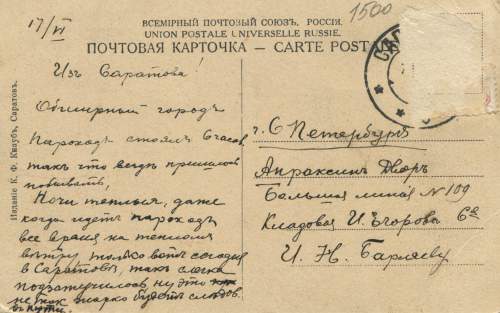 17/VI
1500
ВСЕМІРНЫЙ ПОЧТОВЫЙ СОЮЗЪ. РОССІЯ.
UNION POSTALE UNIVERSELLE RUSSIE.
ПОЧТОВАЯ КАРТОЧКА — CARTE POST
Изданіе К. Ф. Кнаубъ, Саратовъ.
Изъ Саратова!
Обширный городъ
Пароходъ стоялъ 6 часов.
такъ что вездѣ пришлось
побывать,
Ночи теплыя, даже
когда идетъ пароходъ
все время на
вѣтру, только вотъ сегодня
въ Саратовѣ, такъ слегка
ну это
не жарко будетъ
въ пути.
г. С Петербургъ
Апраксинъ Дворъ
Большая линія N 109
Кладовая И. Егорова
И. Н.